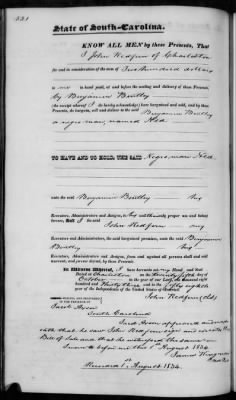 State of South-Carolina.
KNOW ALL MEN by these Presents, That
I John Redfern of Charleston
for and in consideration of the sum of Two hundred dollars
to me in hand paid, at and before the sealing and delivery of these Presents,
by Benjamin Bentley
(the receipt whereof I do hereby acknowledge) have bargained and sold, and by these
Presents, do bargain, sell and deliver to the said Benjamin Bentley
a negro man, named Ned
TO HAVE AND TO HOLD, THE SAID Negro man Ned
unto the said Benjamin Bentley his
Executors, Administrators and Assigns, to his and their proper use and behoof
forever. And I the said
John Redfern my
Executors and Administrators, the said bargained premises, unto the said Benjamin
Bentley his
Executors, Administrators and Assigns, from and against all persons shall and will
warrant, and forever defend, by these Presents.
In Witness Whereof, I have hereunto set my Hand and Seal
Dated at Charleston on the twenty fifth day of
October in the year of our Lord, one thousand eight
hundred and Thirty three and in the fifty eighth
year of the Independence of the United States of America.
SIGNED, SEALED, AND DELIVERED
IN THE PRESENCE OF
John Redfern (LS)
South Carolina
appeared and made
oath that he saw John Redfern sign and
Bill of Sale and that he witnessed the same
Sworn to before me this 1st August 1834.
Recorded 1st August 1834.